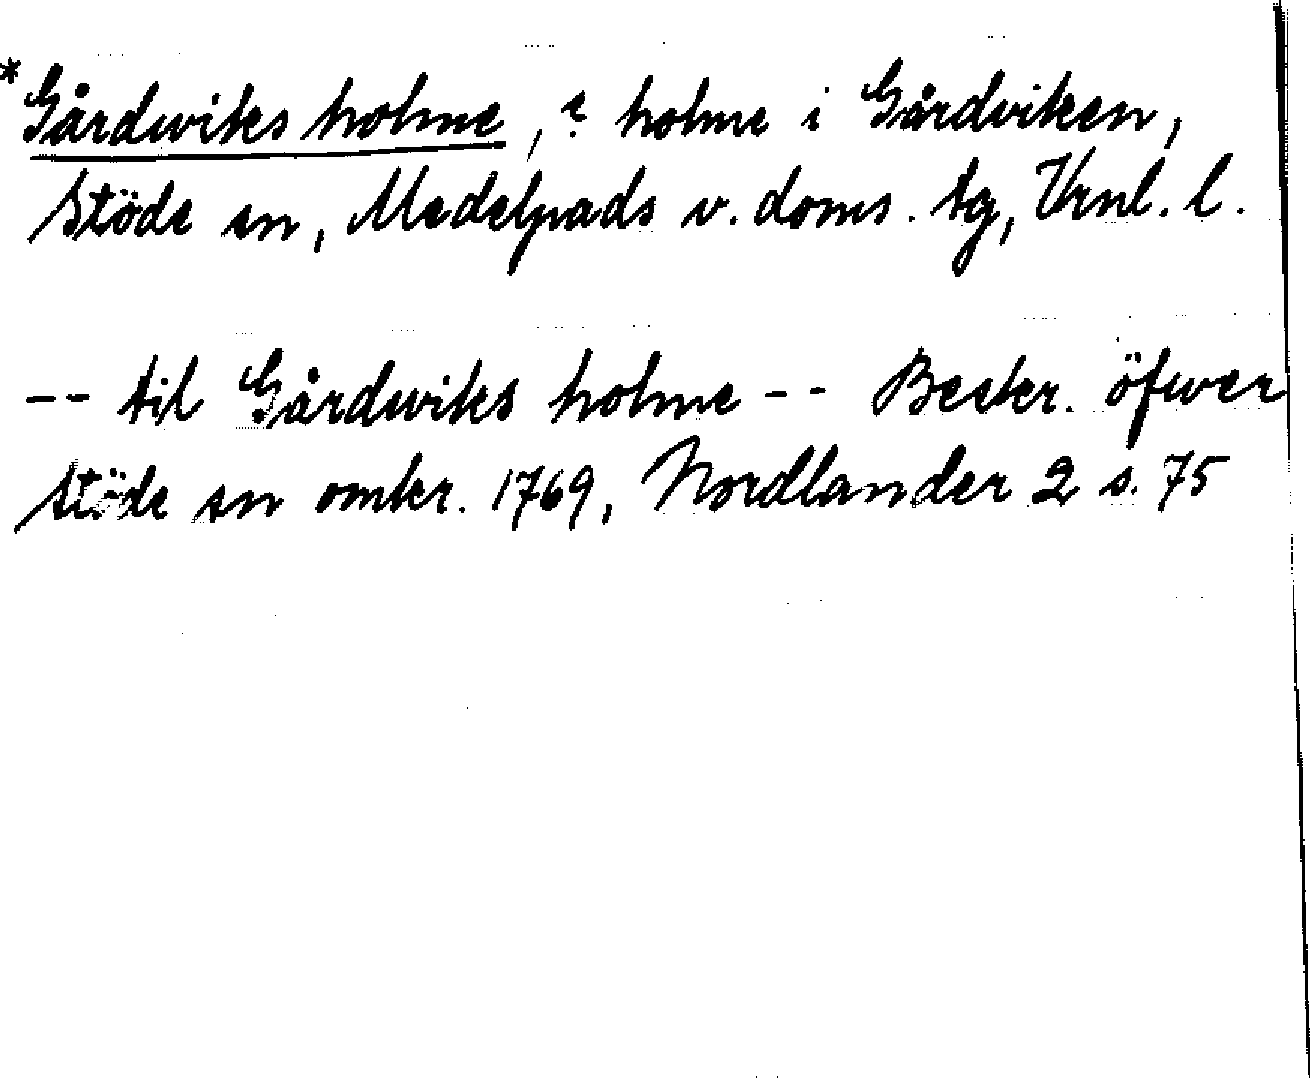 *Gårdwiks holme, ? holme i Gårdviken,
Stöde sn, Medelpads v. doms. tg, Vrnl. l.
-- til Gårdwiks holme -- Beskr. öfwer
Stöde sn omkr. 1769, Nordlander 2 s. 75